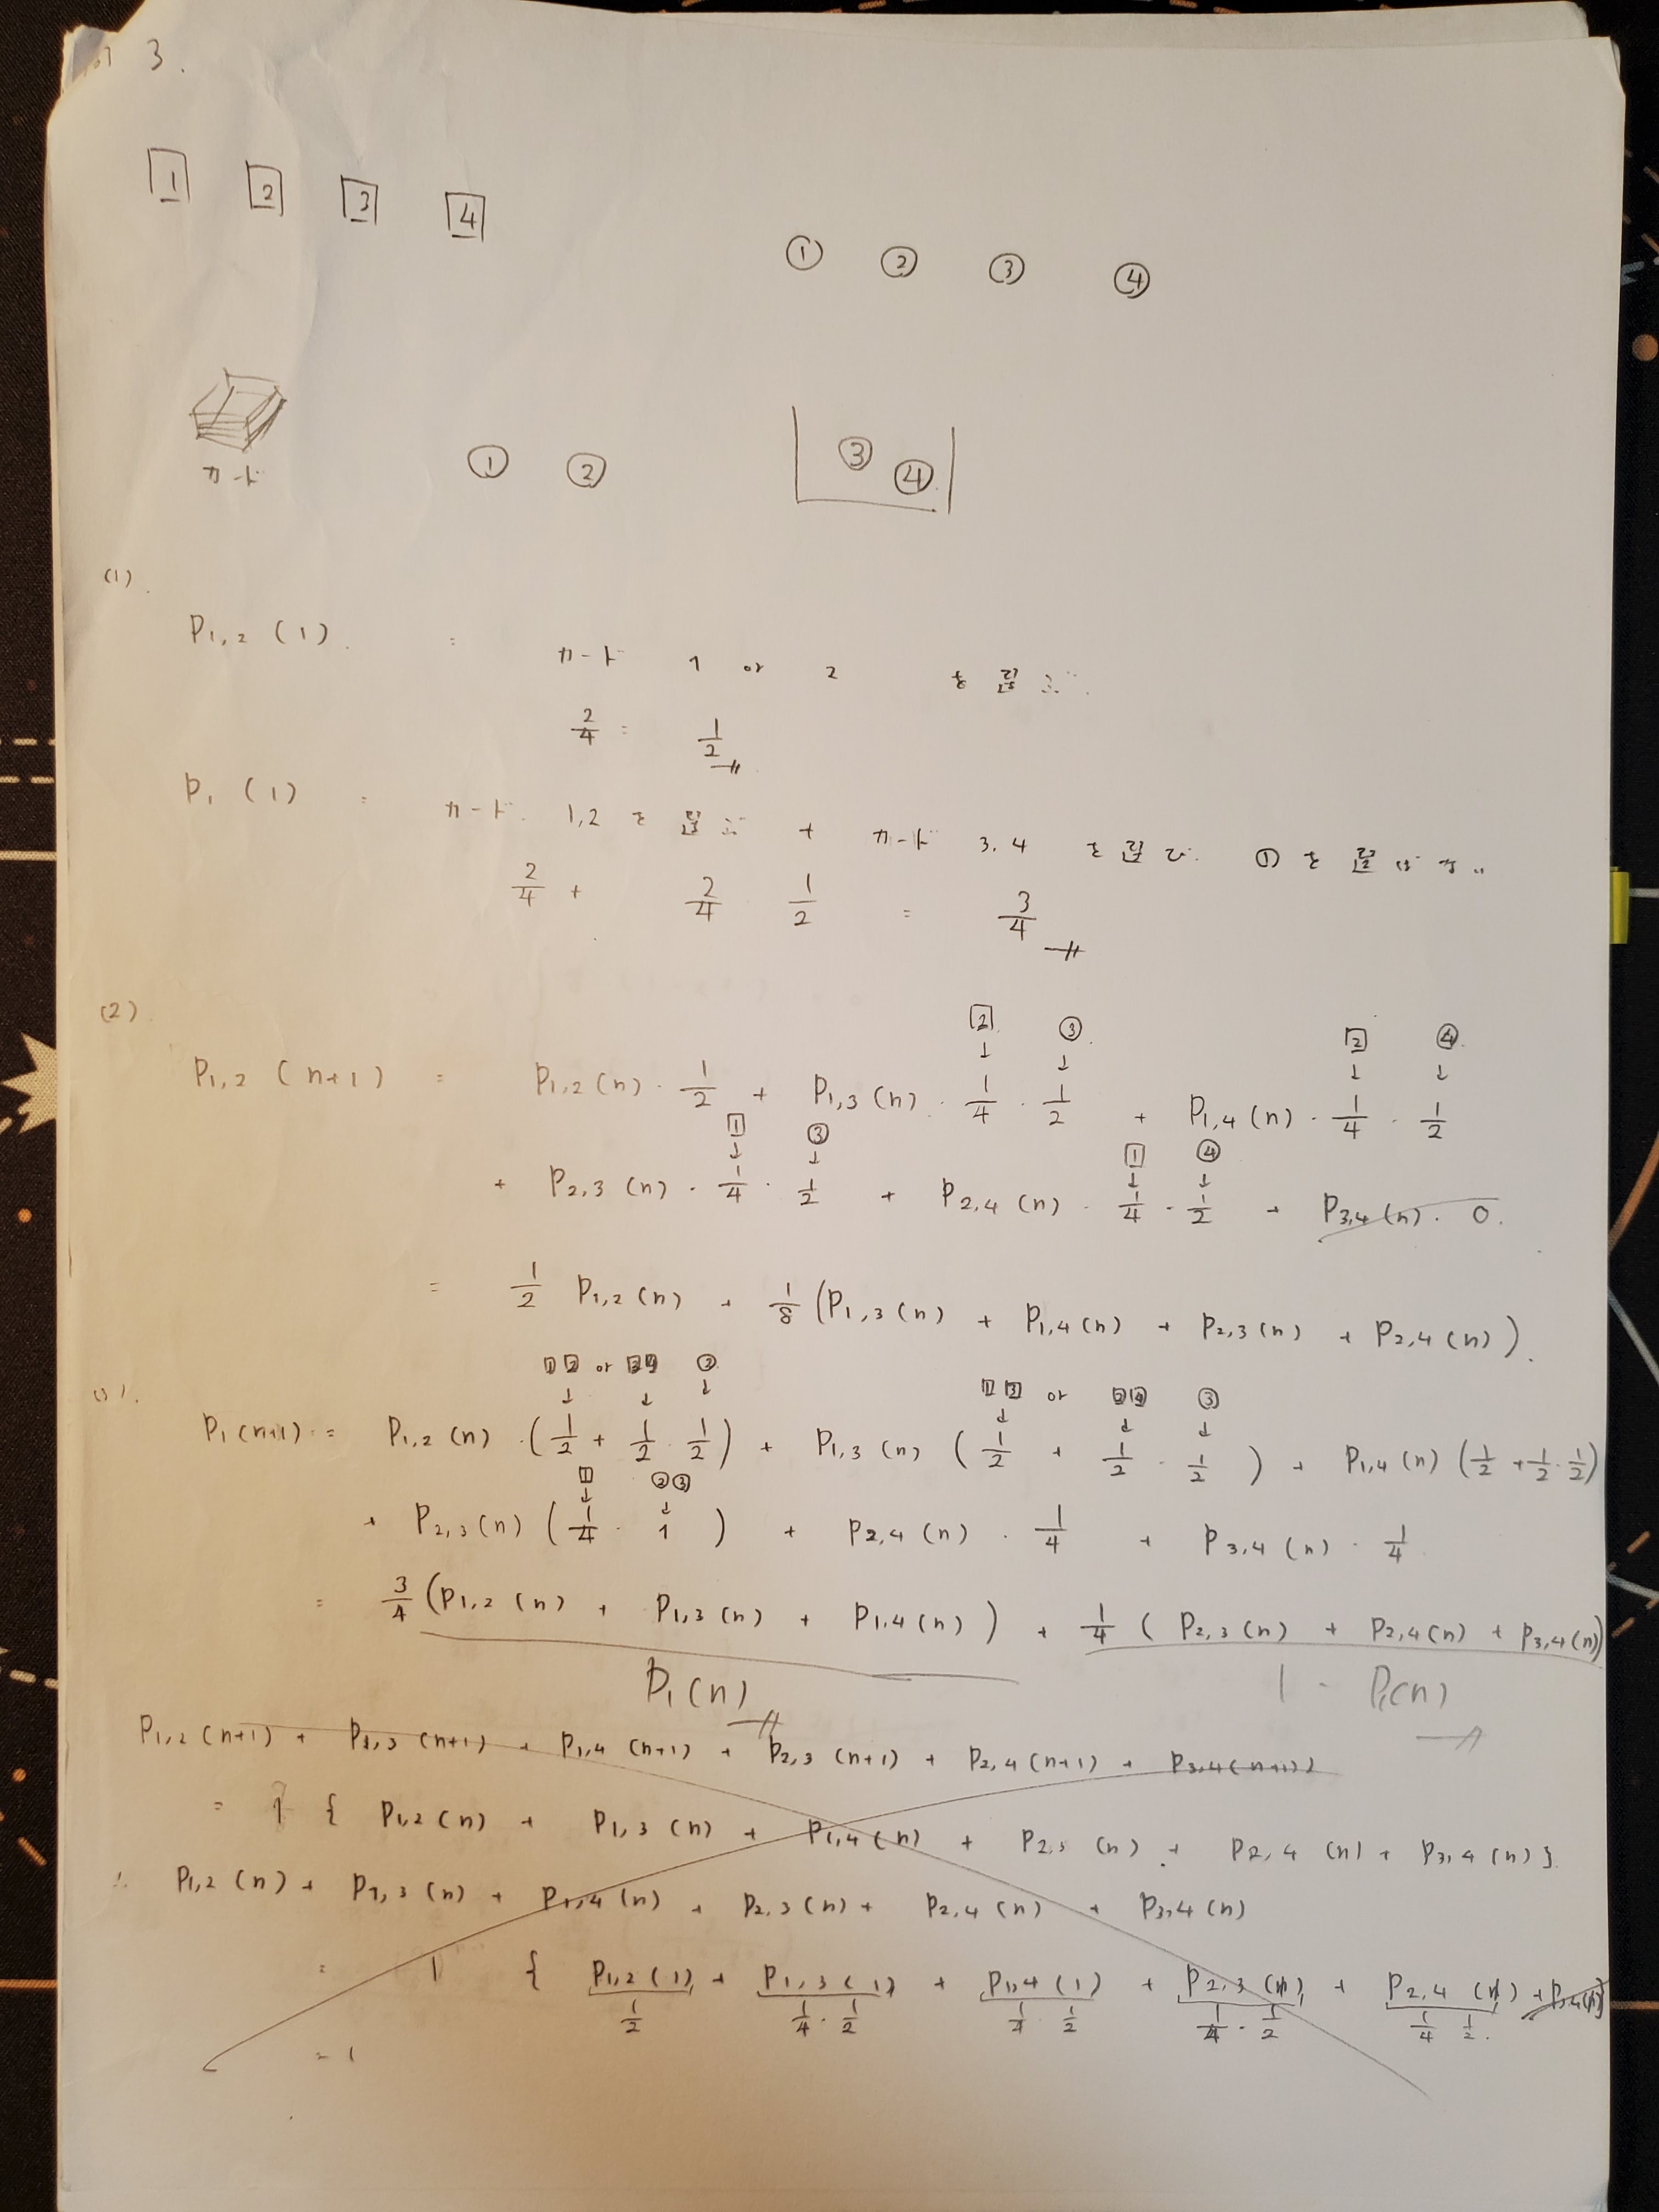 3.
1 2 3 4
① ② ③ ④
カード ① ② ③ ④
(1)
P1,2 (1) = カード 1 or 2 を 選ぶ.
2/4 = 1/2
P1 (1) = カード 1,2 を 選ぶ + カード 3,4 を 選び ① を 選ばない
2/4 + 2/4 · 1/2 = 3/4
(2)
2 ③ 2 ④
↓ ↓ ↓ ↓
P1,2 (n+1) = P1,2 (n) · 1/2 + P1,3 (n) · 1/4 · 1/2 + P1,4 (n) · 1/4 · 1/2
1 ③ 1 ④
↓ ↓ ↓ ↓
+ P2,3 (n) · 1/4 · 1/2 + P2,4 (n) · 1/4 · 1/2 + P3,4 (n) · 0.
= 1/2 P1,2 (n) + 1/8 (P1,3 (n) + P1,4 (n) + P2,3 (n) + P2,4 (n)).
1 2 or 3 4 ② 1 3 or 2 4 ③
↓ ↓ ↓ ↓ ↓ ↓
P1 (n+1) = P1,2 (n) · (1/2 + 1/2 · 1/2) + P1,3 (n) (1/2 + 1/2 · 1/2) + P1,4 (n) (1/2 + 1/2 · 1/2)
1 ②③
↓ ↓
+ P2,3 (n) (1/4 · 1) + P2,4 (n) · 1/4 + P3,4 (n) · 1/4
= 3/4 (P1,2 (n) + P1,3 (n) + P1,4 (n)) + 1/4 (P2,3 (n) + P2,4 (n) + P3,4 (n))
P1 (n) 1 - P1 (n)
P1,2 (n+1) + P1,3 (n+1) + P1,4 (n+1) + P2,3 (n+1) + P2,4 (n+1) + P3,4 (n+1)
= 1 { P1,2 (n) + P1,3 (n) + P1,4 (n) + P2,3 (n) + P2,4 (n) + P3,4 (n) }
∴ P1,2 (n) + P1,3 (n) + P1,4 (n) + P2,3 (n) + P2,4 (n) + P3,4 (n)
= 1 { P1,2 (1) + P1,3 (1) + P1,4 (1) + P2,3 (1) + P2,4 (1) + P3,4 (1) }
1/2 1/4 · 1/2 1/4 · 1/2 1/4 · 1/2 1/4 1/2.
= 1